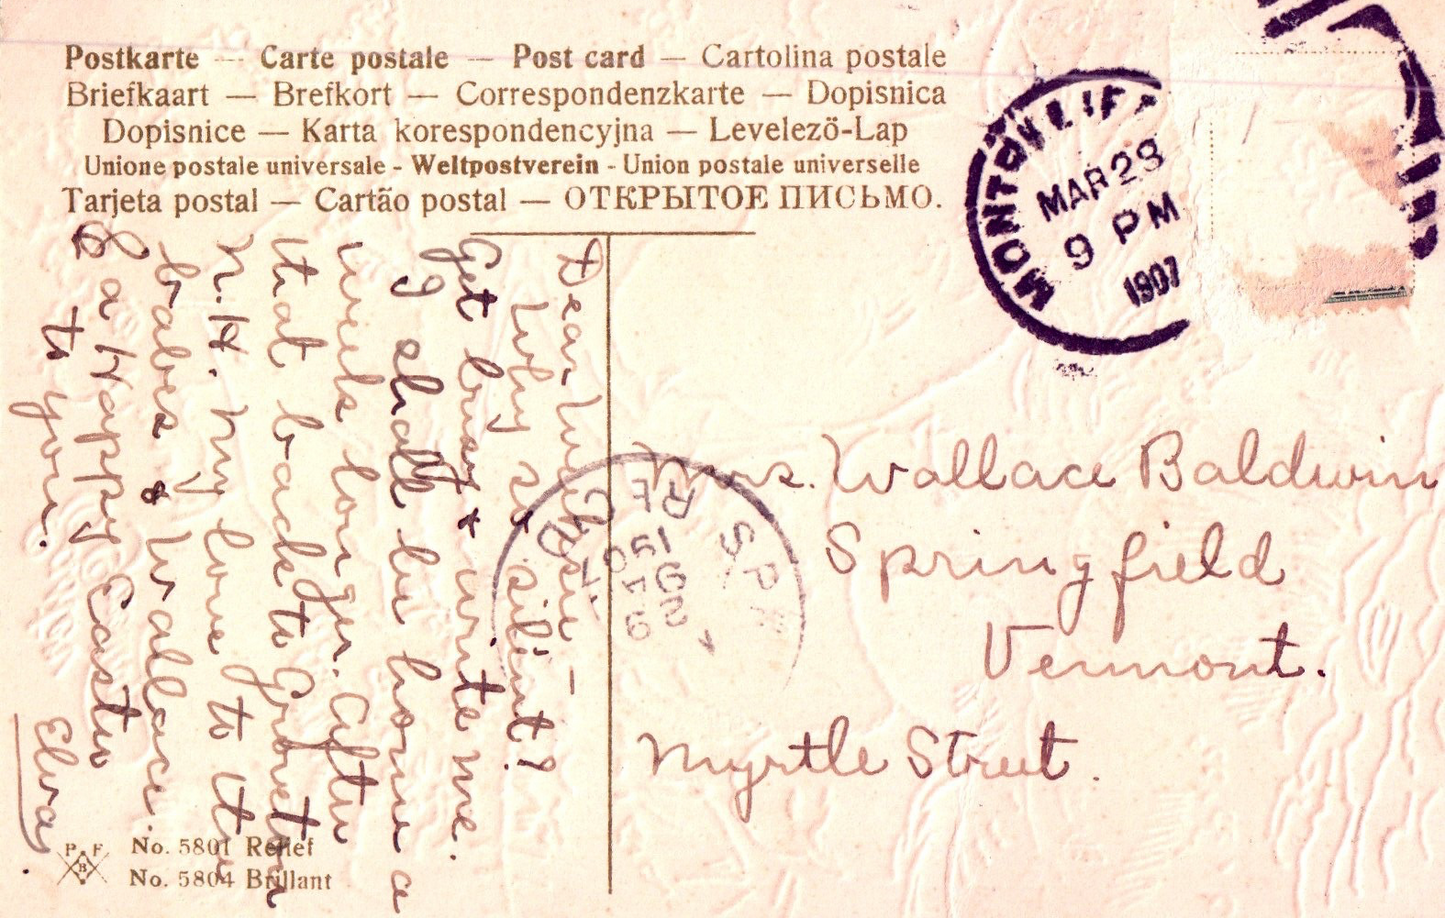 Postkarte — Carte postale — Post card — Cartolina postale
Briefkaart — Brefkort — Correspondenzkarte — Dopisnica
Dopisnice — Karta korespondencyjna — Levelező-Lap
Unione postale universale - Weltpostverein - Union postale universelle
Tarjeta postal — Cartão postal — ОТКРЫТОЕ ПИСЬМО.
MAR 28
9 PM
1907
Dear
Why so silent?
Get busy & write me.
I shall be home a
week longer. After
that back to Groveton
N.H. My love to the
babes & Wallace.
& a Happy Easter
to you.
Elva
REC'D
1907
Mrs. Wallace Baldwin
Springfield
Vermont.
Myrtle Street.
P. F.
B
No. 5801 Relief
No. 5804 Brillant